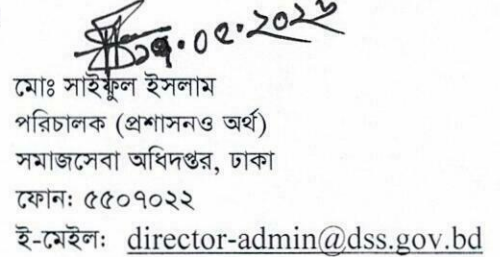 মোঃ সাইফুল ইসলাম
পরিচালক (প্রশাসনও অর্থ)
সমাজসেবা অধিদপ্তর, ঢাকা
ফোন: ৫৫০৭০২২
ই-মেইল: director-admin@dss.gov.bd